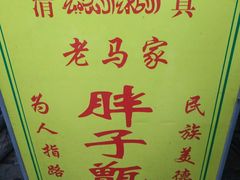 清 真
老马家
胖子甑
为人指路
民族美德